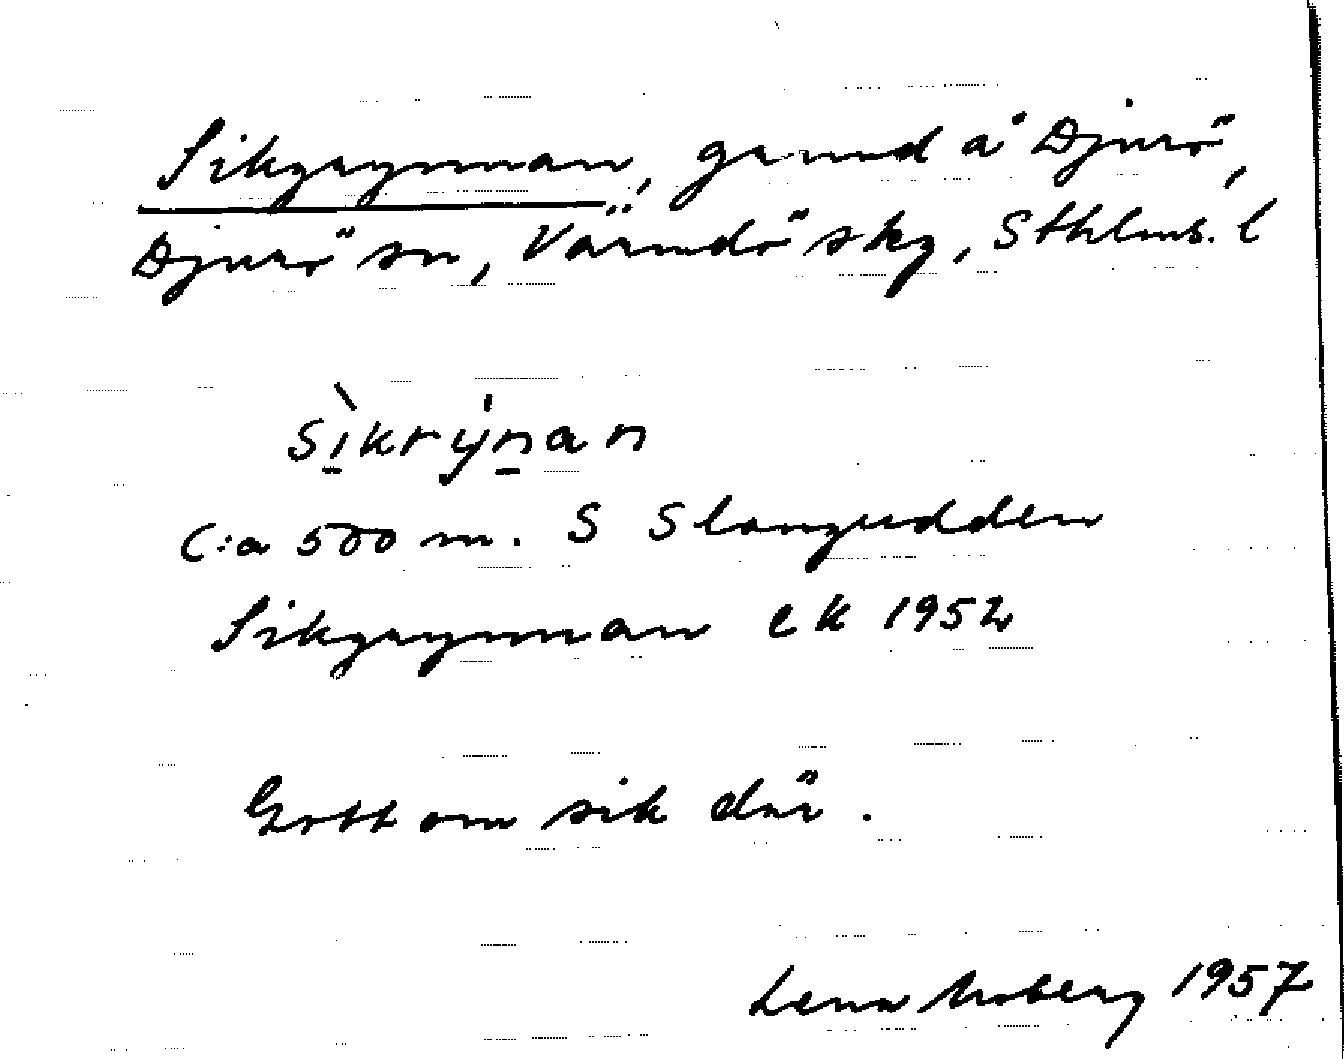 Sikgrynnan, grund å Djurö,
Djurö sn, Värmdö skg, Sthlms. l
sı̀krýnan
C:a 500 m. S Slangudden
Sikgrynnan ek 1952
Gott om sik där.
Lena Moberg 1957